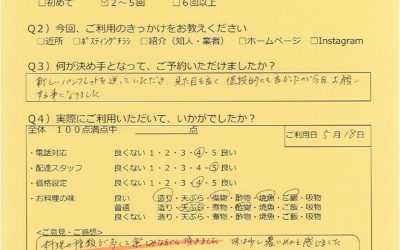 □初めて ☑2～5回 □6回以上
Q2）今回、ご利用のきっかけをお教えください
□近所 □ポスティングチラシ □紹介（知人・業者） □ホームページ □Instagram
Q3）何が決め手となって、ご予約いただけましたか？
新しいパンフレットを送っていただき、見た目も良く、価格的にも良かったので今回、お願い
する事になりました
Q4）実際にご利用いただいて、いかがでしたか？
全体 100点満点中 点
ご利用日 5月18日
・電話対応 良くない 1・2・3・4・5 良い
・配達スタッフ 良くない 1・2・3・4・5 良い
・価格設定 良くない 1・2・3・4・5 良い
・お料理の味 良い 造り・天ぷら・煮物・酢物・焼魚・ご飯・吸物
普通 造り・天ぷら・煮物・酢物・焼魚・ご飯・吸物
良くない 造り・天ぷら・煮物・酢物・焼魚・ご飯・吸物
ご意見・ご感想
料理の種類が多くて楽しみながら頂きました 味は少し濃いめかと感じました